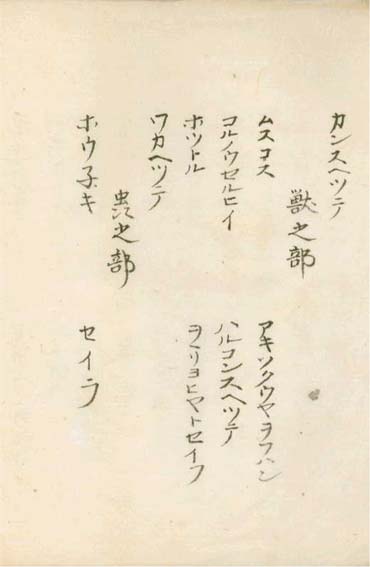 カンスヘツテ
獣之部
ムスコス　アキソクウヤヲフハン
コルノウセルヒイ　ハルコンスヘツテ
ホツトル　ヲヽリヨヒヤトセイフ
ワカヘツテ
虫之部
ホウ子キ　セイラ